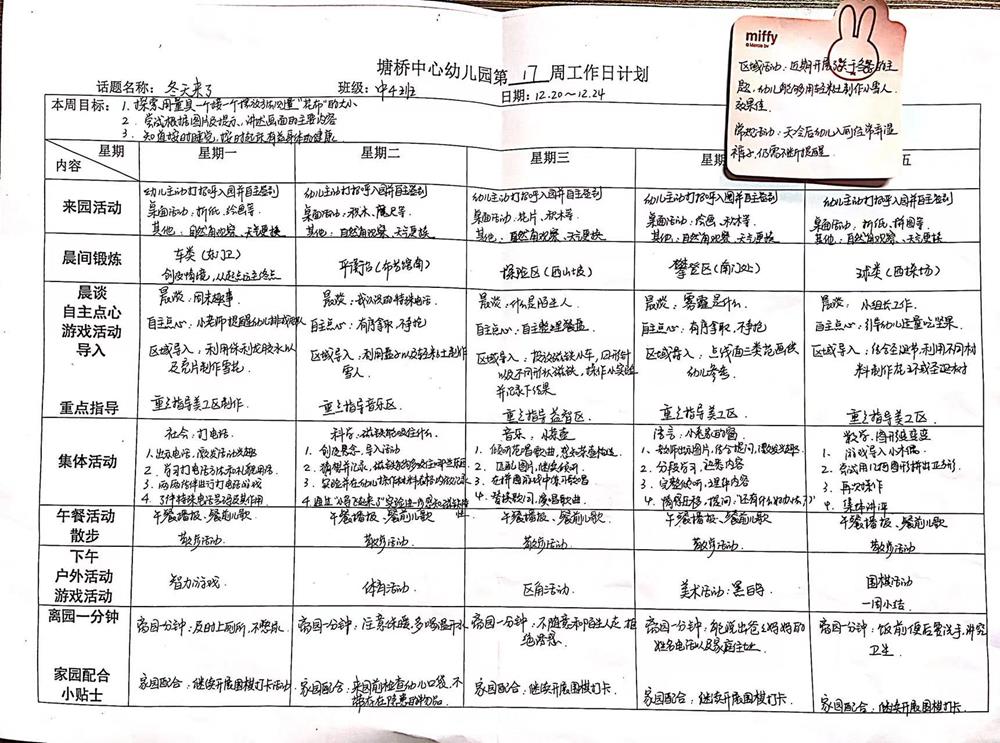 miffy
区域活动：近期开展
题，幼儿能够用轻粘土制作小雪人，
效果佳。
天冷后幼儿入厕经常弄湿
裤子，仍需不断提醒。
塘桥中心幼儿园第 17 周工作日计划
话题名称：冬天来了 班级：中4班 日期：12.20～12.24
本周目标：1. 探索用量具一个接一个摆放测量"花布"的大小
2. 尝试根据图片及提示，讲述画面的主要内容
3. 知道按时睡觉，按时起床有益身体的健康
星期 内容 星期一 星期二 星期三 星期 五
来园活动
幼儿主动打招呼入园并自主签到
桌面活动：折纸、绘画等.
其他：自然角观察、天气更换
幼儿主动打招呼入园并自主签到
桌面活动：积木、等.
其他：自然角观察、天气更换
幼儿主动打招呼入园并自主签到
桌面活动：花片、积木等.
其他：自然角观察、天气更换
幼儿主动打招呼入园并自主签到
桌面活动：绘画、积木等.
其他：自然角观察、天气更换
幼儿主动打招呼入园并自主签到
桌面活动：折纸、拼图等.
其他：自然角观察、天气更换
晨间锻炼
车类（东门卫）
创设情境，从起点运至终点
平衡台
探险区（西山坡）
攀登区（南门处）
球类（西操场）
晨谈
自主点心
游戏活动
导入
重点指导
晨谈：周末趣事
自主点心：小老师提醒幼儿排好队
区域导入：利用保利龙胶水以
及亮片制作雪花
重点指导美工区制作.
晨谈：我认识的特殊电话.
自主点心：有序拿取，不争抢
区域导入：利用盖子以及轻粘土制作
雪人
重点指导音乐区.
晨谈：什么是陌生人
自主点心：自主整理餐盘.
区域导入：投放磁铁小车，回形针
以及不同形状磁铁，操作小实验
并记录下结果
重点指导益智区.
晨谈：雾霾是什么.
自主点心：有序拿取，不争抢
区域导入：点线面三类范画供
幼儿参考
重点指导美工区
晨谈：小组长工作.
自主点心：引导幼儿适量吃坚果.
区域导入：结合圣诞节，利用不同材
料制作花环或圣诞树
重点指导美工区.
集体活动
社会：打电话.
1. 出示电话，激发活动兴趣
2. 学习打电话方法和礼貌用语
3. 两两合作进行打电话游戏
4. 了解特殊电话号码及其作用
科学：磁铁能吸住什么.
1. 创设悬念，导入活动
2. 猜测并记录，磁铁能够吸住哪些东西
4. 通过"小哥飞起来了"实验进一步感知磁铁特性
音乐：小茶壶
1. 倾听范唱歌曲，感知茶壶构造
2. 匹配图片，继续倾听
3. 在拼图游戏中练习歌唱
4. 替换歌词，演唱歌曲.
语言：小老鼠的窗
1. 教师出示图片，结合提问，激发兴趣
2. 分段学习，熟悉内容
3. 完整倾听，理解内容
4. 情感迁移，提问
数学：图形变变变
1. 游戏导入小木偶.
2. 尝试用几何图形拼出正方形.
3. 再次操作
4. 集体讲评
午餐活动 午餐播报、餐前儿歌 午餐播报、餐前儿歌 午餐播报、餐前儿歌 午餐播报、餐前儿歌 午餐播报、餐前儿歌
散步 散步活动. 散步活动. 散步活动. 散步活动. 散步活动
下午
户外活动
游戏活动
智力游戏.
体育活动
区角活动.
美术活动：黑白
围棋活动
一周小结.
离园一分钟
离园一分钟：及时上厕所，不憋尿.
离园一分钟：注意保暖，多喝温开水
离园一分钟：不随意和陌生人走，拒
绝诱惑.
离园一分钟：能说出爸爸妈妈的
姓名电话以及家庭住址
离园一分钟：饭前便后要洗手，讲究
卫生
家园配合
小贴士
家园配合：继续开展围棋打卡活动
家园配合：来园前检查幼儿口袋，不
带存在隐患的物品
家园配合：继续开展围棋打卡.
家园配合：继续开展围棋打卡.
家园配合：继续开展围棋打卡.